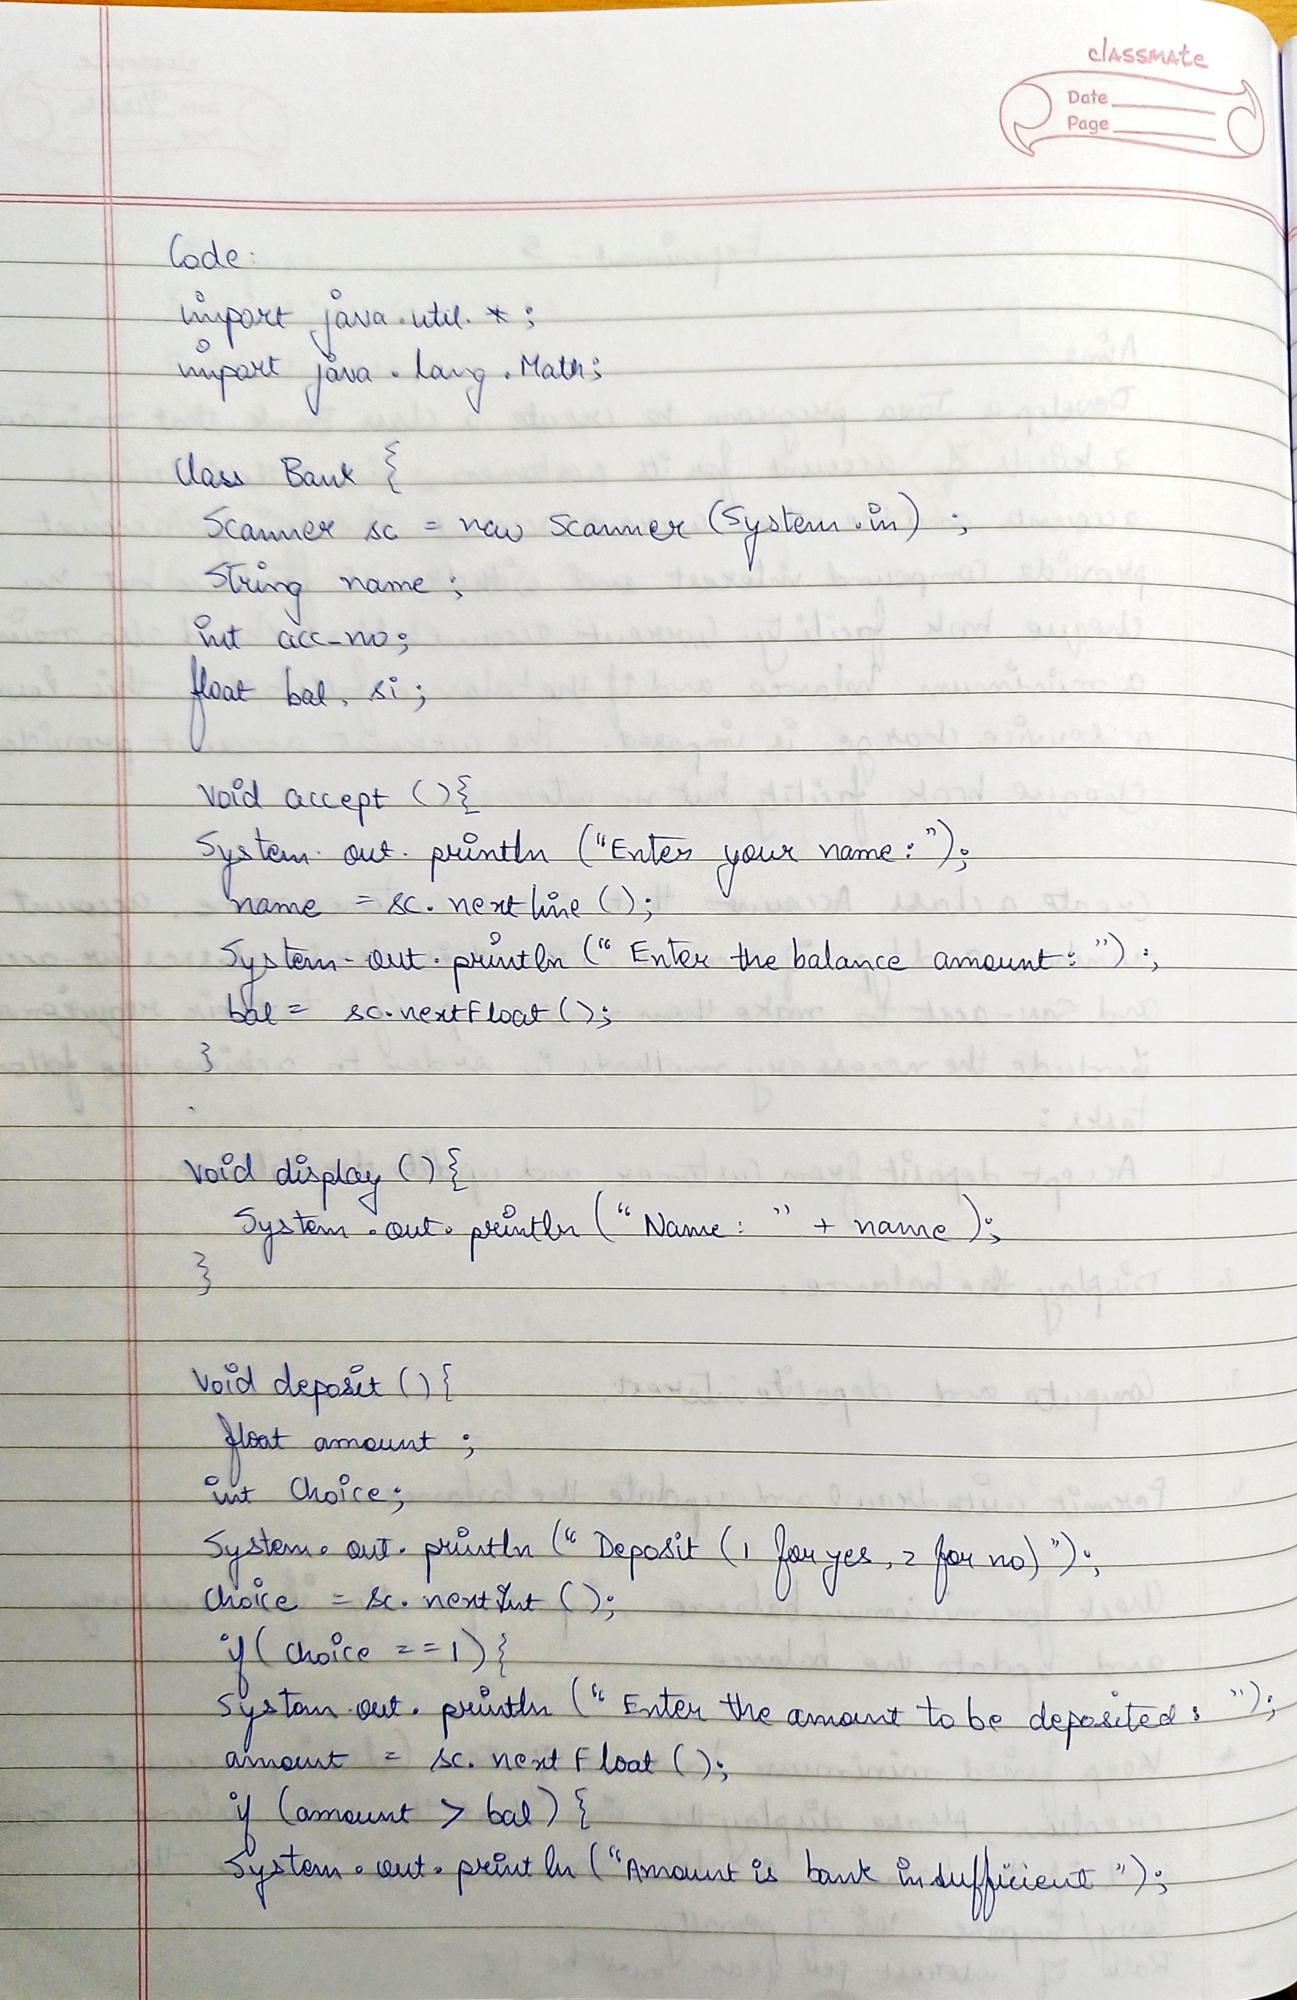 classmate
Date
Page
Code:
import java.util.*;
import java.lang.Math;
class Bank {
Scanner sc = new Scanner (System.in) ;
String name ;
int acc-no;
float bal, si ;
void accept (){
System.out.println ("Enter your name:");
name = sc.nextline ();
System.out.println (" Enter the balance amount: ") ;
bal = sc.nextFloat ();
}
void display (){
System.out.println (" Name: " + name );
}
void deposit () {
float amount ;
int choice;
System.out.println (" Deposit (1 for yes, 2 for no) ");
choice = sc.nextInt ();
if( choice ==1) {
System.out.println (" Enter the amount to be deposited: ");
amount = sc.nextFloat ();
if (amount > bal) {
System.out.println ("Amount is bank insufficient ");